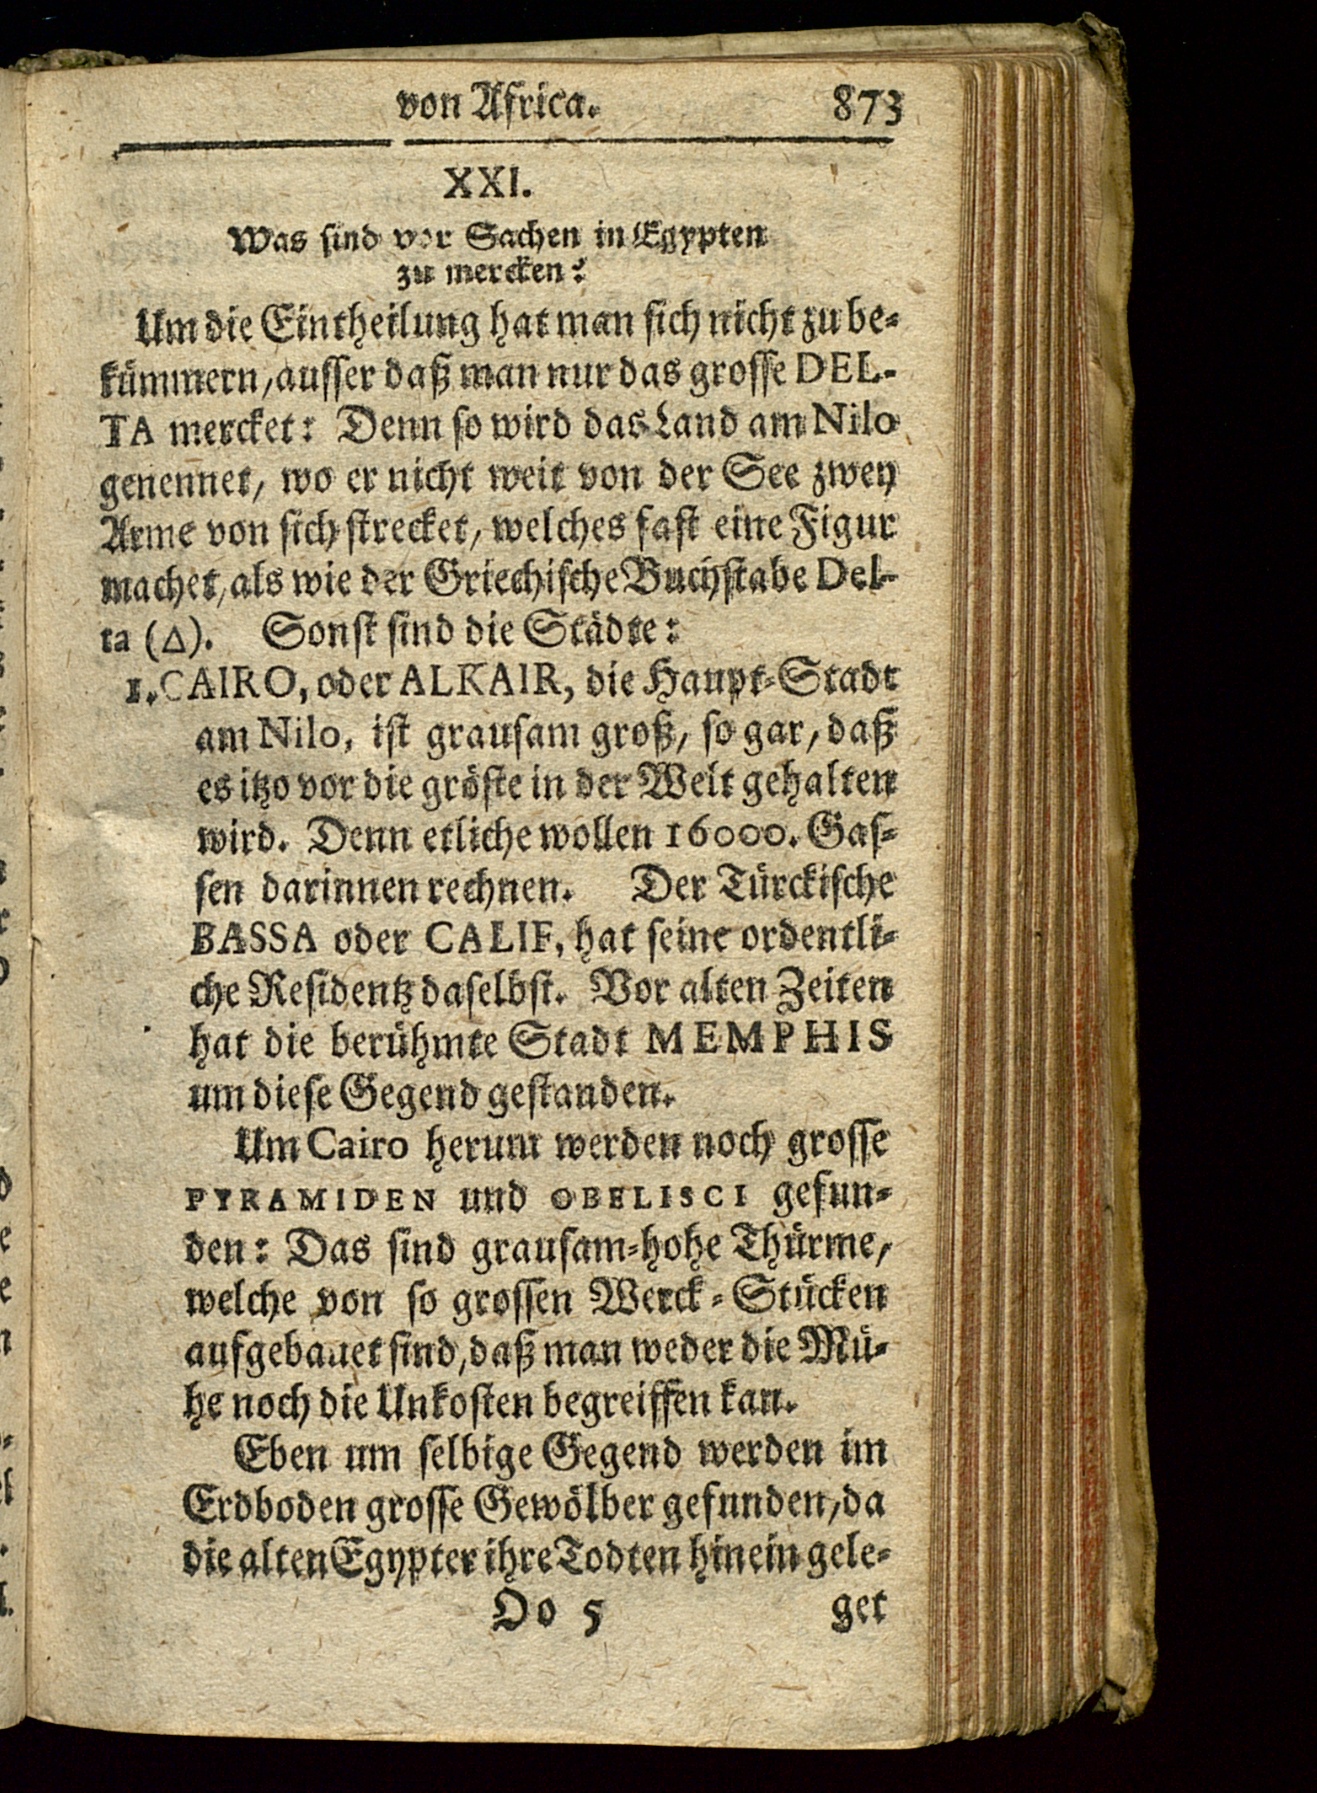 von Africa. 873
XXI.
Was sind vor Sachen in Egypten
zu mercken?
Um die Eintheilung hat man sich nicht zu be-
kümmern, ausser daß man nur das grosse DEL-
TA mercket: Denn so wird das Land am Nilo
genennet, wo er nicht weit von der See zwey
Arme von sich strecket, welches fast eine Figur
machet, als wie der Griechische Buchstabe Del-
ta (Δ). Sonst sind die Städte:
1. CAIRO, oder ALKAIR, die Haupt-Stadt
am Nilo, ist grausam groß, so gar, daß
es itzo vor die gröste in der Welt gehalten
wird. Denn etliche wollen 16000. Gas-
sen darinnen rechnen. Der Türckische
BASSA oder CALIF, hat seine ordentli-
che Residentz daselbst. Vor alten Zeiten
hat die berühmte Stadt MEMPHIS
um diese Gegend gestanden.
Um Cairo herum werden noch grosse
PYRAMIDEN und OBELISCI gefun-
den: Das sind grausam-hohe Thürme,
welche von so grossen Werck-Stücken
aufgebauet sind, daß man weder die Mü-
he noch die Unkosten begreiffen kan.
Eben um selbige Gegend werden im
Erdboden grosse Gewölber gefunden, da
die alten Egypter ihre Todten hinein gele-
Oo 5 get